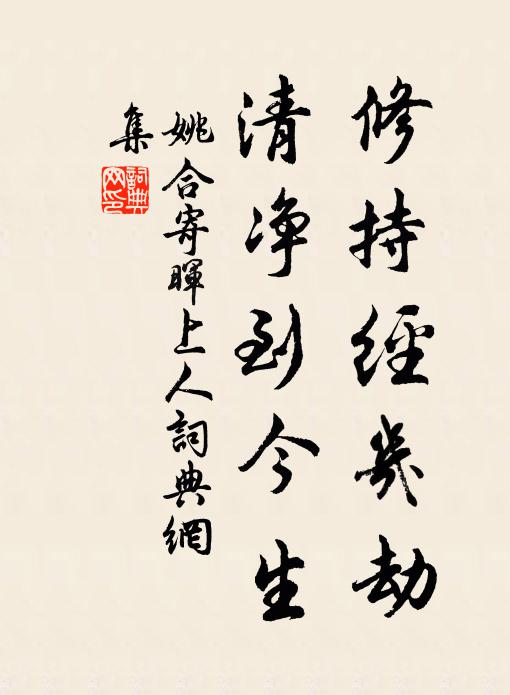 修持經幾劫
清净到今生
姚合寄暉上人詞典網
集
詞典网印